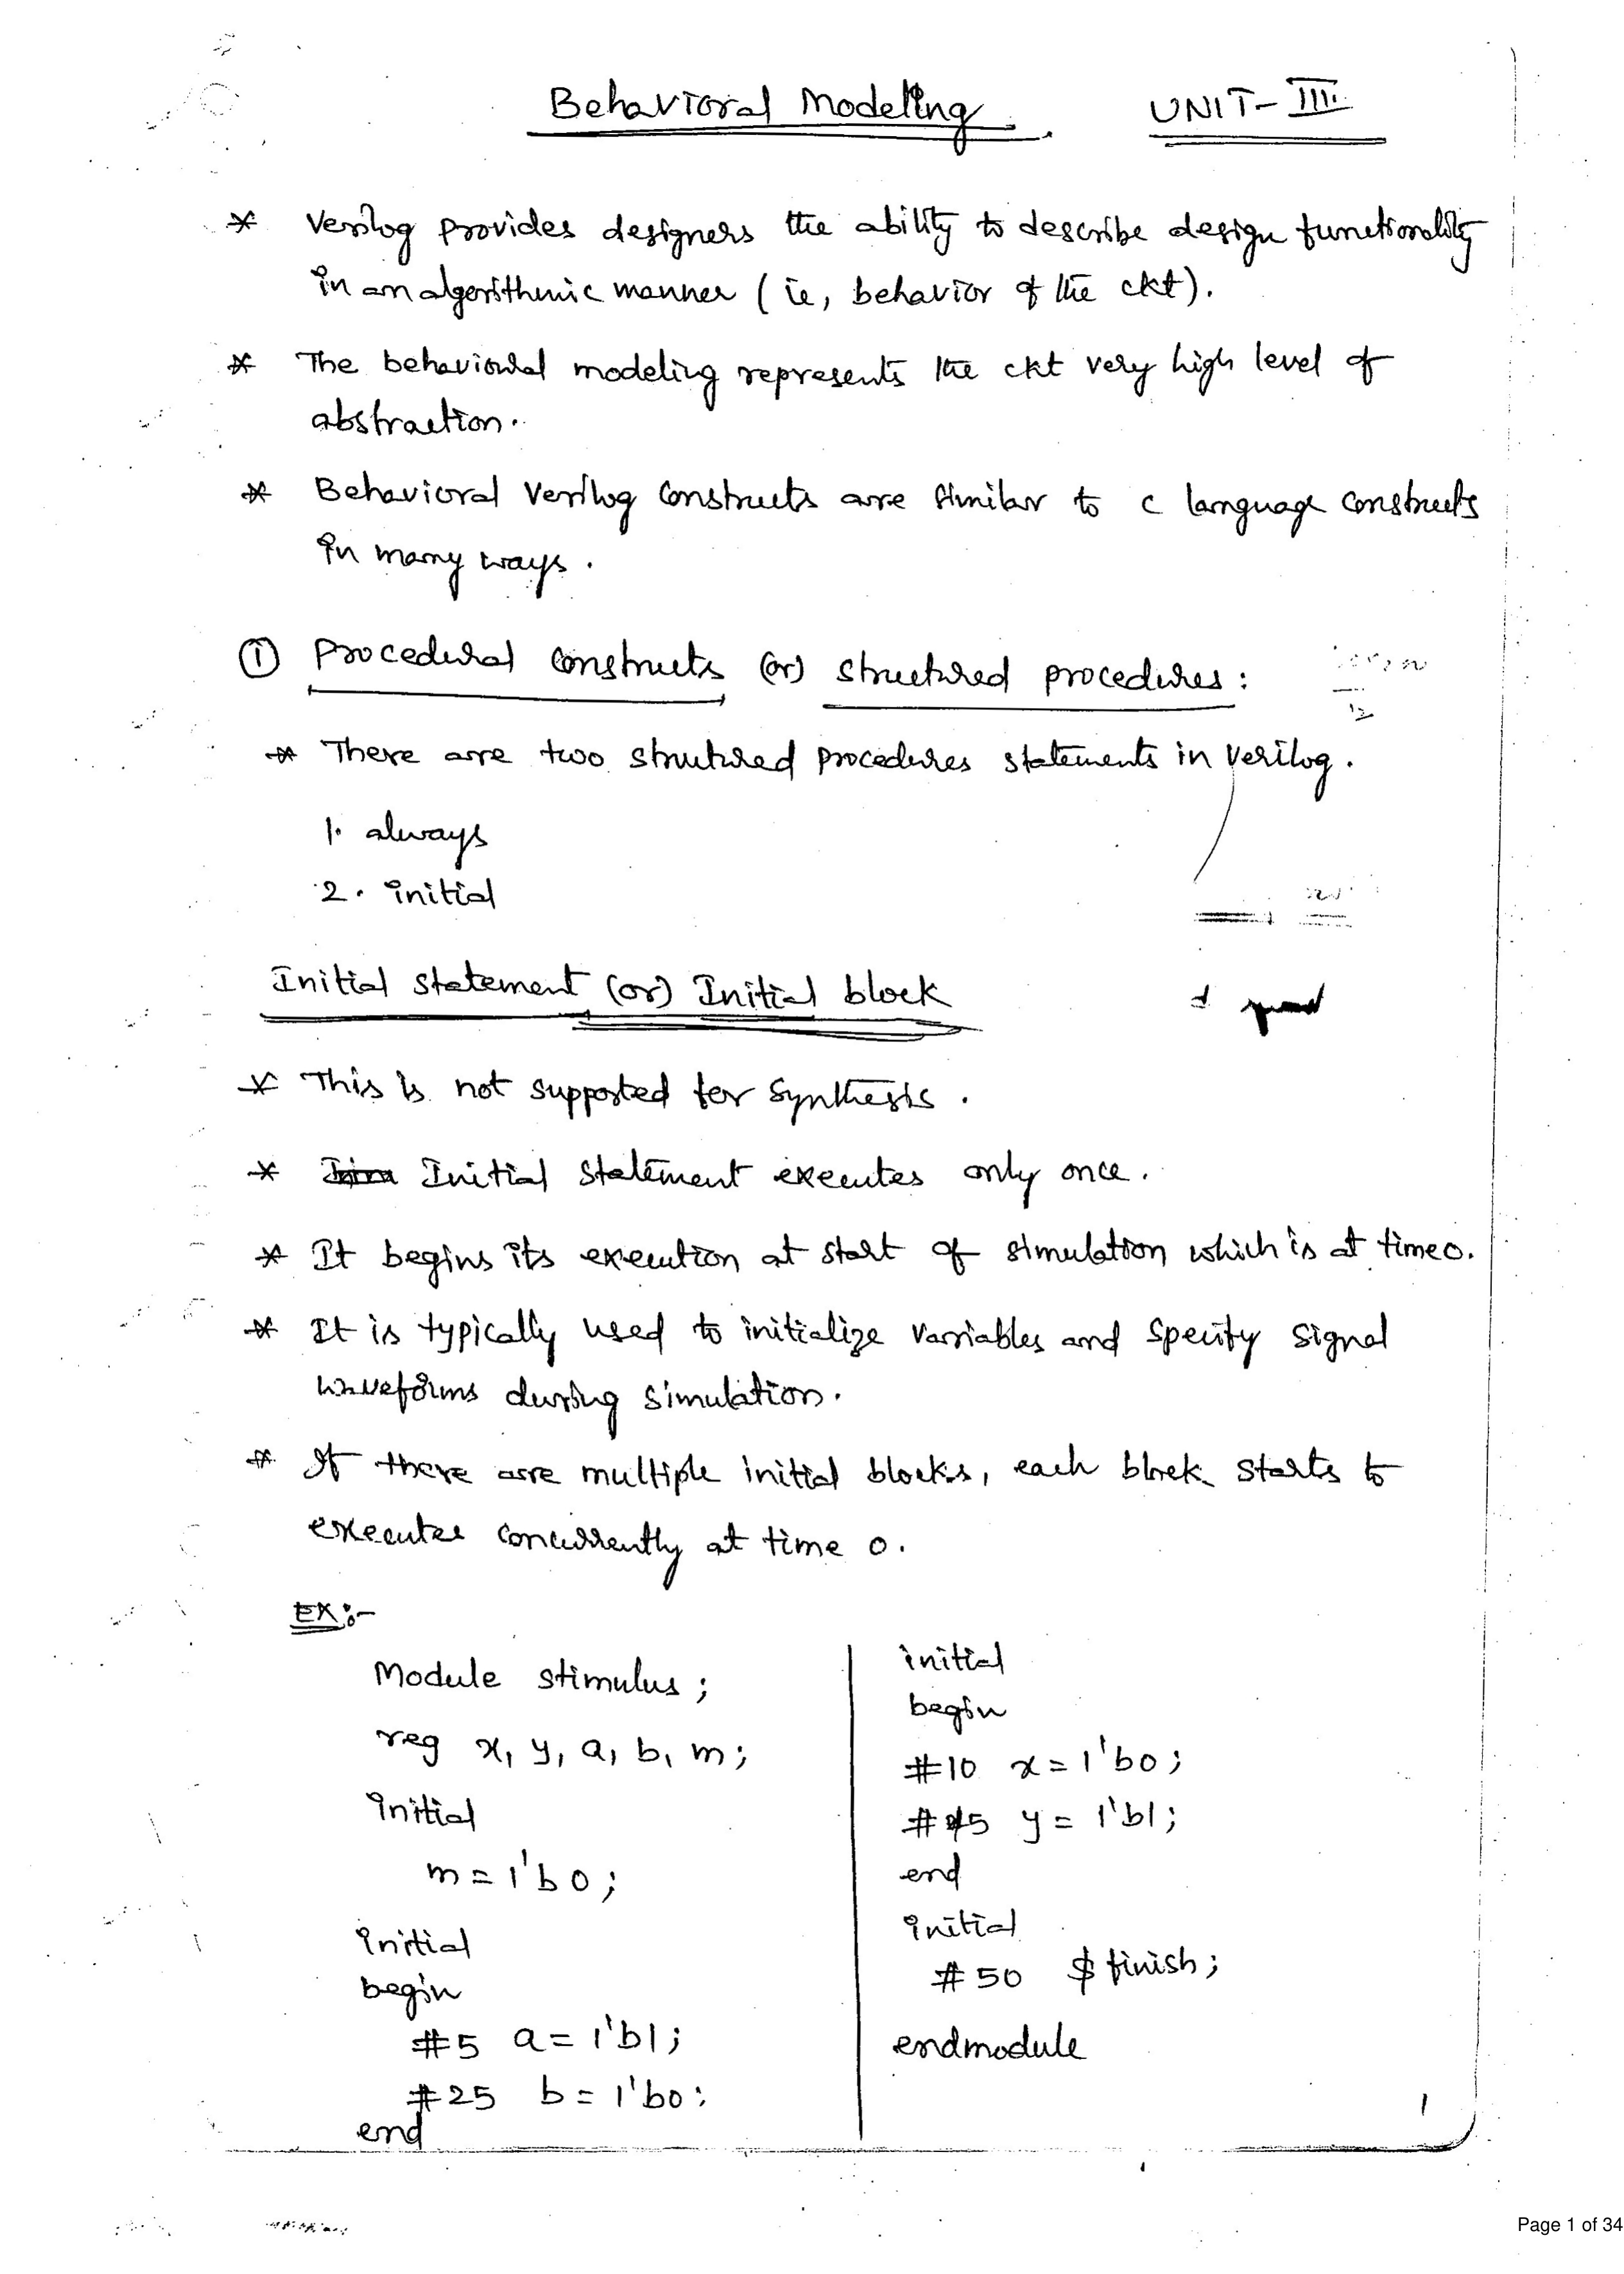 Behavioral Modeling UNIT-III
* Verilog provides designers the ability to describe design functionality
in an algorithmic manner (ie, behavior of the ckt).
* The behavioural modeling represents the ckt very high level of
abstraction.
* Behavioral Verilog constructs are similar to c language constructs
in many ways.
① Procedural constructs (or) structured procedures:
* There are two strutured procedures statements in verilog.
1. always
2. initial
Initial statement (or) Initial block
* This is not supported for synthesis.
* Initial statement executes only once.
* It begins its execution at start of simulation which is at time 0.
* It is typically used to initialize variables and specify signal
waveforms during simulation.
* If there are multiple initial blocks, each block starts to
executes concurrently at time 0.
EX:-
Module stimulus;
reg x, y, a, b, m;
initial
m = 1'b0;
initial
begin
#5 a = 1'b1;
#25 b = 1'b0;
end
initial
begin
#10 x = 1'b0;
y = 1'b1;
end
initial
#50 $finish;
endmodule
1
Page 1 of 34